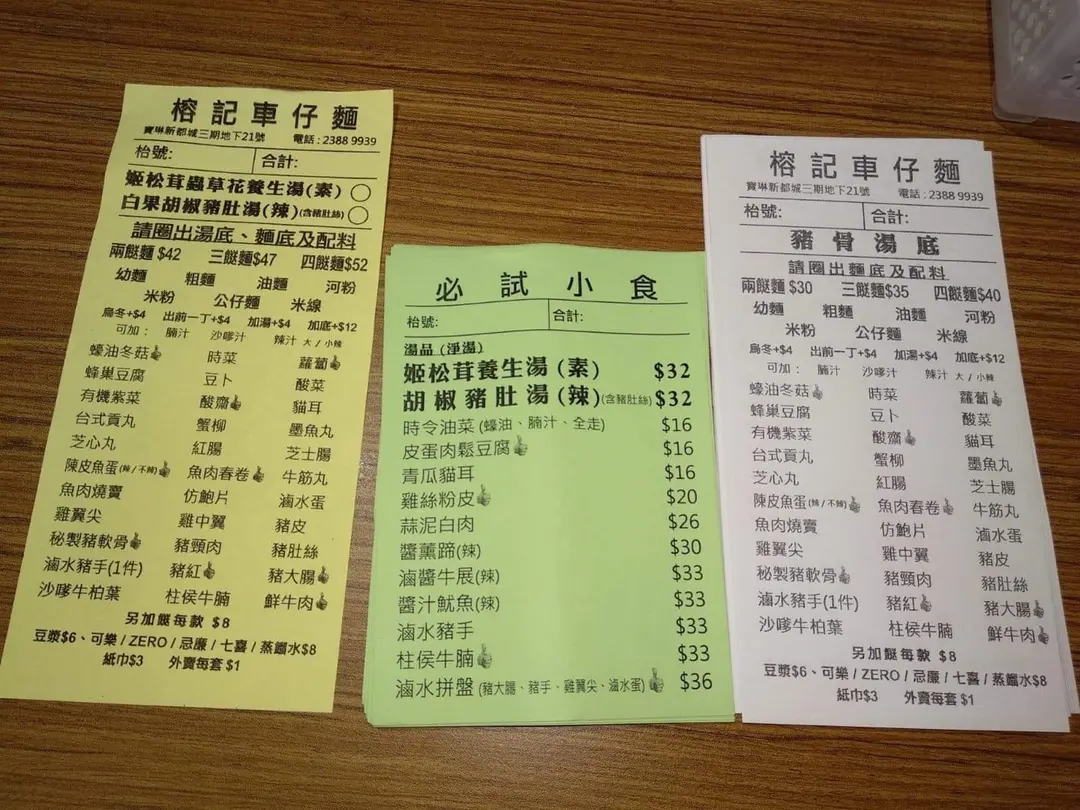 榕記車仔麵
寶琳新都城三期地下21號 電話:2388 9939
枱號: 合計:
姬松茸蟲草花養生湯(素)
白果胡椒豬肚湯(辣)(含豬肚絲)
請圈出湯底、麵底及配料
兩餸麵 $42 三餸麵$47 四餸麵$52
幼麵 粗麵 油麵 河粉
米粉 公仔麵 米線
烏冬+$4 出前一丁+$4 加湯+$4 加底+$12
可加: 腩汁 沙嗲汁 辣汁 大 / 小辣
蠔油冬菇 時菜 蘿蔔
蜂巢豆腐 豆卜 酸菜
有機紫菜 酸齋 貓耳
台式貢丸 蟹柳 墨魚丸
芝心丸 紅腸 芝士腸
陳皮魚蛋(辣/不辣) 魚肉春卷 牛筋丸
魚肉燒賣 仿鮑片 滷水蛋
雞翼尖 雞中翼 豬皮
秘製豬軟骨 豬頸肉 豬肚絲
滷水豬手(1件) 豬紅 豬大腸
沙嗲牛柏葉 柱侯牛腩 鮮牛肉
另加餸每款 $8
豆漿$6、可樂 / ZERO / 忌廉 / 七喜 / 蒸餾水$8
紙巾$3 外賣每套 $1
必試小食
枱號: 合計:
湯品 (淨湯)
姬松茸養生湯(素) $32
胡椒豬肚湯(辣)(含豬肚絲) $32
時令油菜 (蠔油、腩汁、全走) $16
皮蛋肉鬆豆腐 $16
青瓜貓耳 $16
雞絲粉皮 $20
蒜泥白肉 $26
醬薰蹄(辣) $30
滷醬牛展(辣) $33
醬汁魷魚(辣) $33
滷水豬手 $33
柱侯牛腩 $33
滷水拼盤 (豬大腸、豬手、雞翼尖、滷水蛋) $36
榕記車仔麵
寶琳新都城三期地下21號 電話:2388 9939
枱號: 合計:
豬骨湯底
請圈出麵底及配料
兩餸麵 $30 三餸麵$35 四餸麵$40
幼麵 粗麵 油麵 河粉
米粉 公仔麵 米線
烏冬+$4 出前一丁+$4 加湯+$4 加底+$12
可加: 腩汁 沙嗲汁 辣汁 大 / 小辣
蠔油冬菇 時菜 蘿蔔
蜂巢豆腐 豆卜 酸菜
有機紫菜 酸齋 貓耳
台式貢丸 蟹柳 墨魚丸
芝心丸 紅腸 芝士腸
陳皮魚蛋(辣/不辣) 魚肉春卷 牛筋丸
魚肉燒賣 仿鮑片 滷水蛋
雞翼尖 雞中翼 豬皮
秘製豬軟骨 豬頸肉 豬肚絲
滷水豬手(1件) 豬紅 豬大腸
沙嗲牛柏葉 柱侯牛腩 鮮牛肉
另加餸每款 $8
豆漿$6、可樂 / ZERO / 忌廉 / 七喜 / 蒸餾水$8
紙巾$3 外賣每套 $1